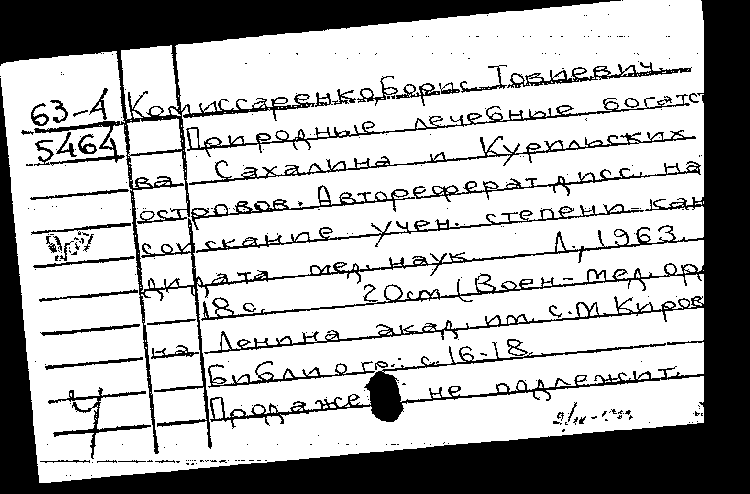 63-4 Комиссаренко, Борис Товиевич.
5464 Природные лечебные богатст
ва Сахалина и Курильских
островов. Автореферат дисс. на
соискание учен. степени кан
дидата мед. наук Л., 1963.
18 с. 20см (Воен-мед. орде
на Ленина акад. им. С.М. Киров
Библиогр.: с. 16-18
Продаже не подлежит.
Ч